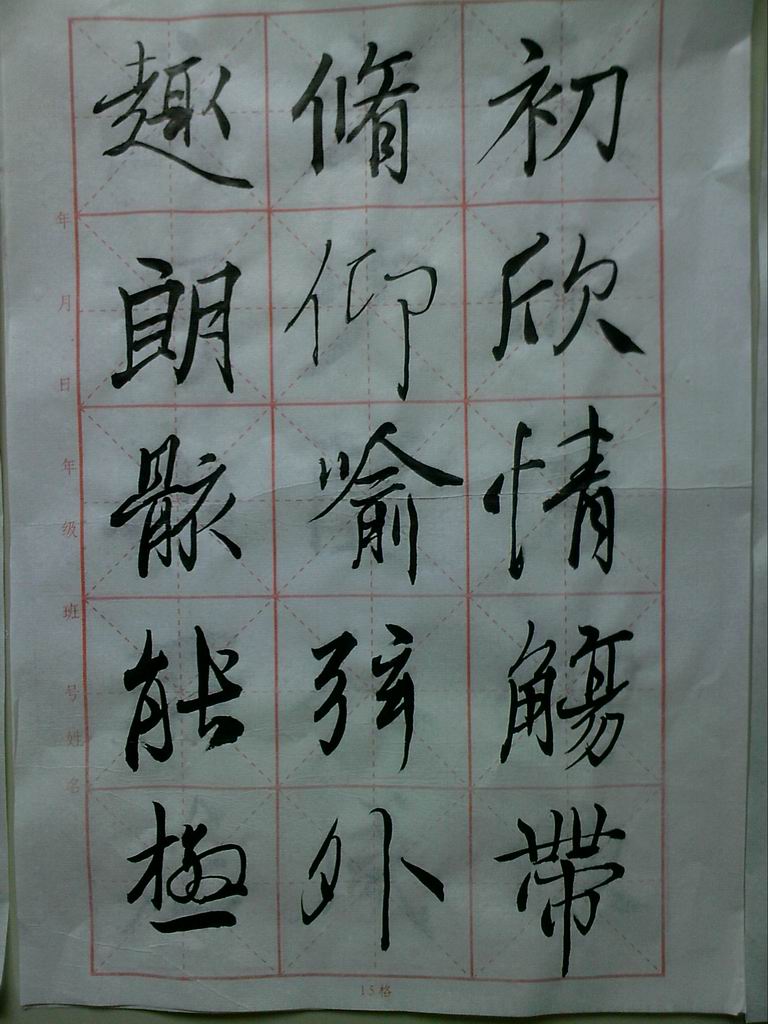 初欣情觴帶
脩仰喻弦外
趣朗骸能極
年月日
年级班号姓名
15格